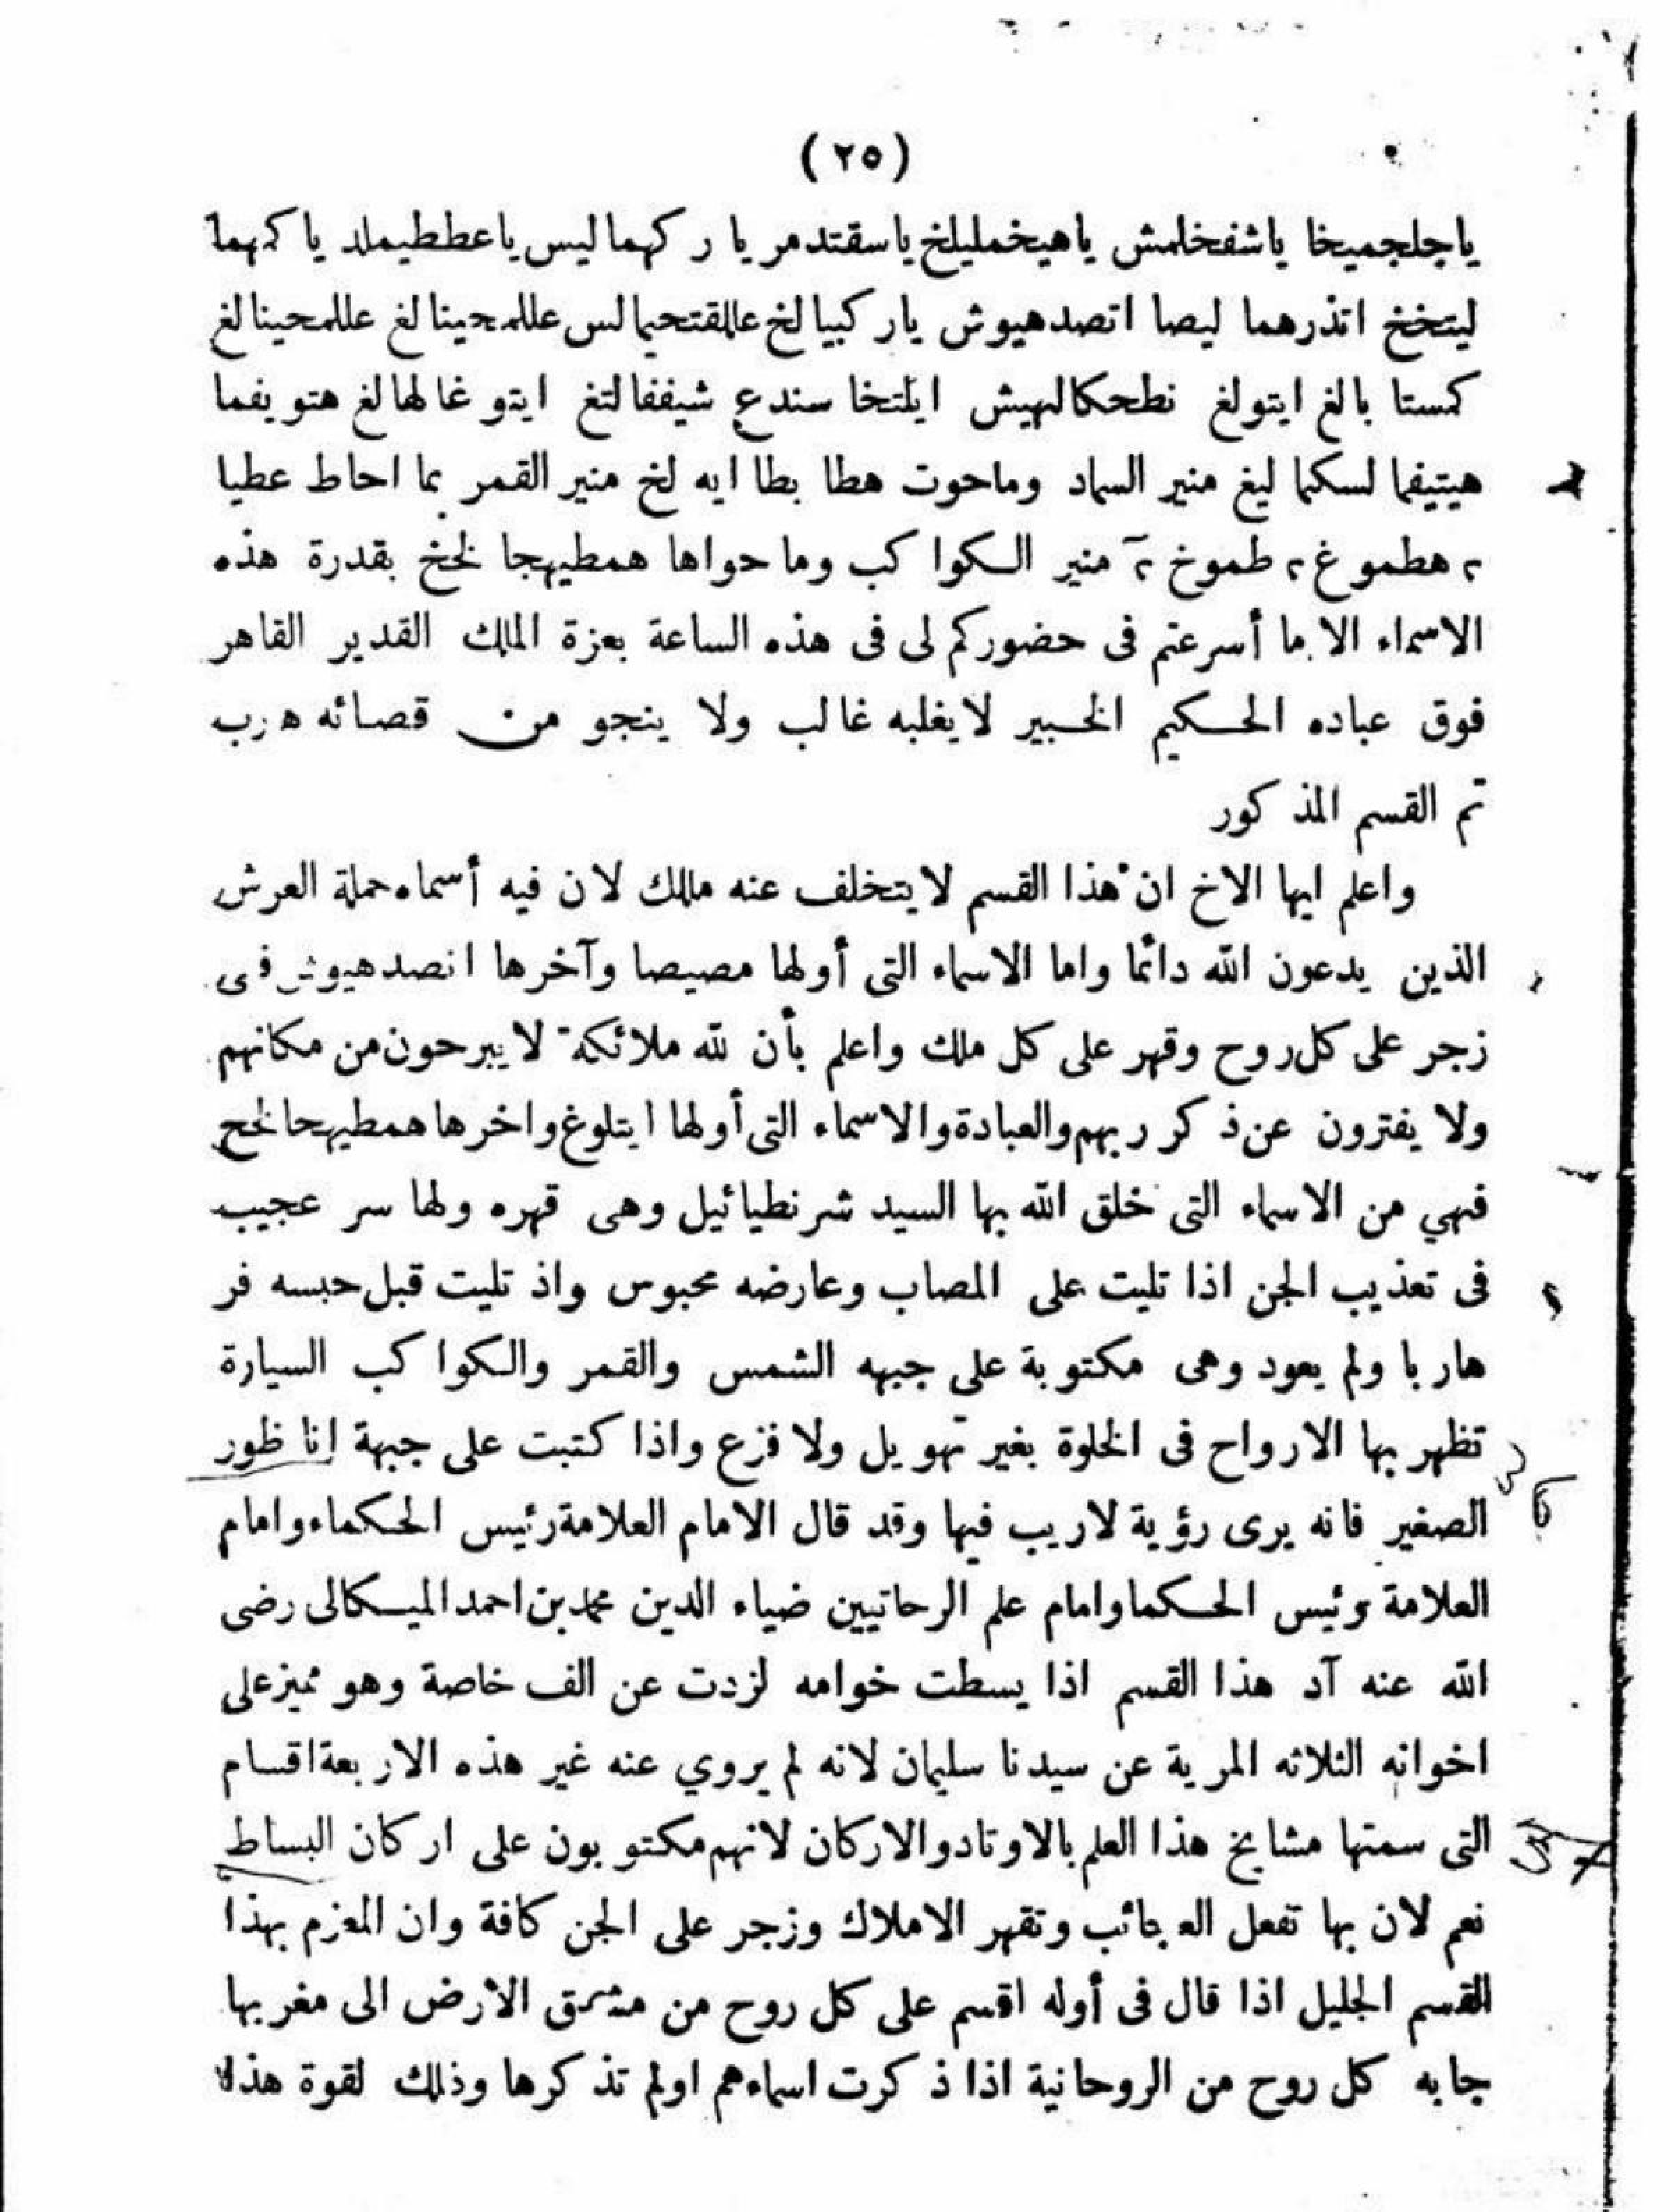 (٢٥)
ياجلجميخا ياشفخلمش ياهيخمليلخ ياسقتدمر يا ر كهماليس ياعططيملد يا كهما
ليتخخ اتذرهما ليصا اتصدهيوش يار كبيالخ عاللقتحيمالس عللمحينالغ عللمحينالغ
كمستا بالغ ايتولغ نطحكالهيش ايلتخا سندع شيففالتغ ايتو غا لهالغ هتو يفما
هيتيفما لسكما ليغ منير السماد وماحوت هطا بطا ايه لخ منير القمر بما احاط عطيا
٢ هطمو غ ٢ طموخ ٢ منير الكوا كب وما حواها همطيهجا لخخ بقدرة هذه
الاسماء الا ما أسرعتم فى حضوركم لى فى هذه الساعة بعزة الملك القدير القاهر
فوق عباده الحكيم الخبير لايغلبه غالب ولا ينجو من قصائه هرب
تم القسم المذ كور
واعلم ايها الاخ ان هذا القسم لايتخلف عنه مالك لان فيه أسماه حملة العرش
الذين يدعون الله دائما واما الاسماء التى أولها مصيصا وآخرها انصدهيوش فى
زجر على كل روح وقهر على كل ملك واعلم بأن لله ملائكة لايبرحون من مكانهم
ولا يفترون عن ذ كر ربهم والعبادة والاسماء التى أولها ايتلوغ واخرها همطيهحالخج
فهي من الاسماء التى خلق الله بها السيد شرنطيائيل وهى قهره ولها سر عجيب
فى تعذيب الجن اذا تليت على المصاب وعارضه محبوس واذ تليت قبل حبسه فر
هار با ولم يعود وهى مكتوبة على جبهه الشمس والقمر والكوا كب السيارة
تظهر بها الارواح فى الخلوة بغير تهو يل ولا فزع واذا كتبت على جبهة انا ظور
الصغير فانه يرى رؤية لاريب فيها وقد قال الامام العلامة رئيس الحكماء وامام
العلامة رئيس الحكما وامام علم الرحانيين ضياء الدين محمد بن احمد الميكالى رضى
الله عنه آد هذا القسم اذا يسطت خوامه لزدت عن الف خاصة وهو مميز على
اخوانه الثلاثه المرية عن سيدنا سليمان لانه لم يروي عنه غير هذه الاربعة اقسام
التى سمتها مشايخ هذا العلم بالاوتاد والاركان لانهم مكتو بون على اركان البساط
نعم لان بها تفعل العجائب وتقهر الاملاك وزجر على الجن كافة وان المعزم بهذا
القسم الجليل اذا قال فى أوله اقسم على كل روح من مشرق الارض الى مغربها
جابه كل روح من الروحانية اذا ذ كرت اسماءهم اولم تذ كرها وذلك لقوة هذا